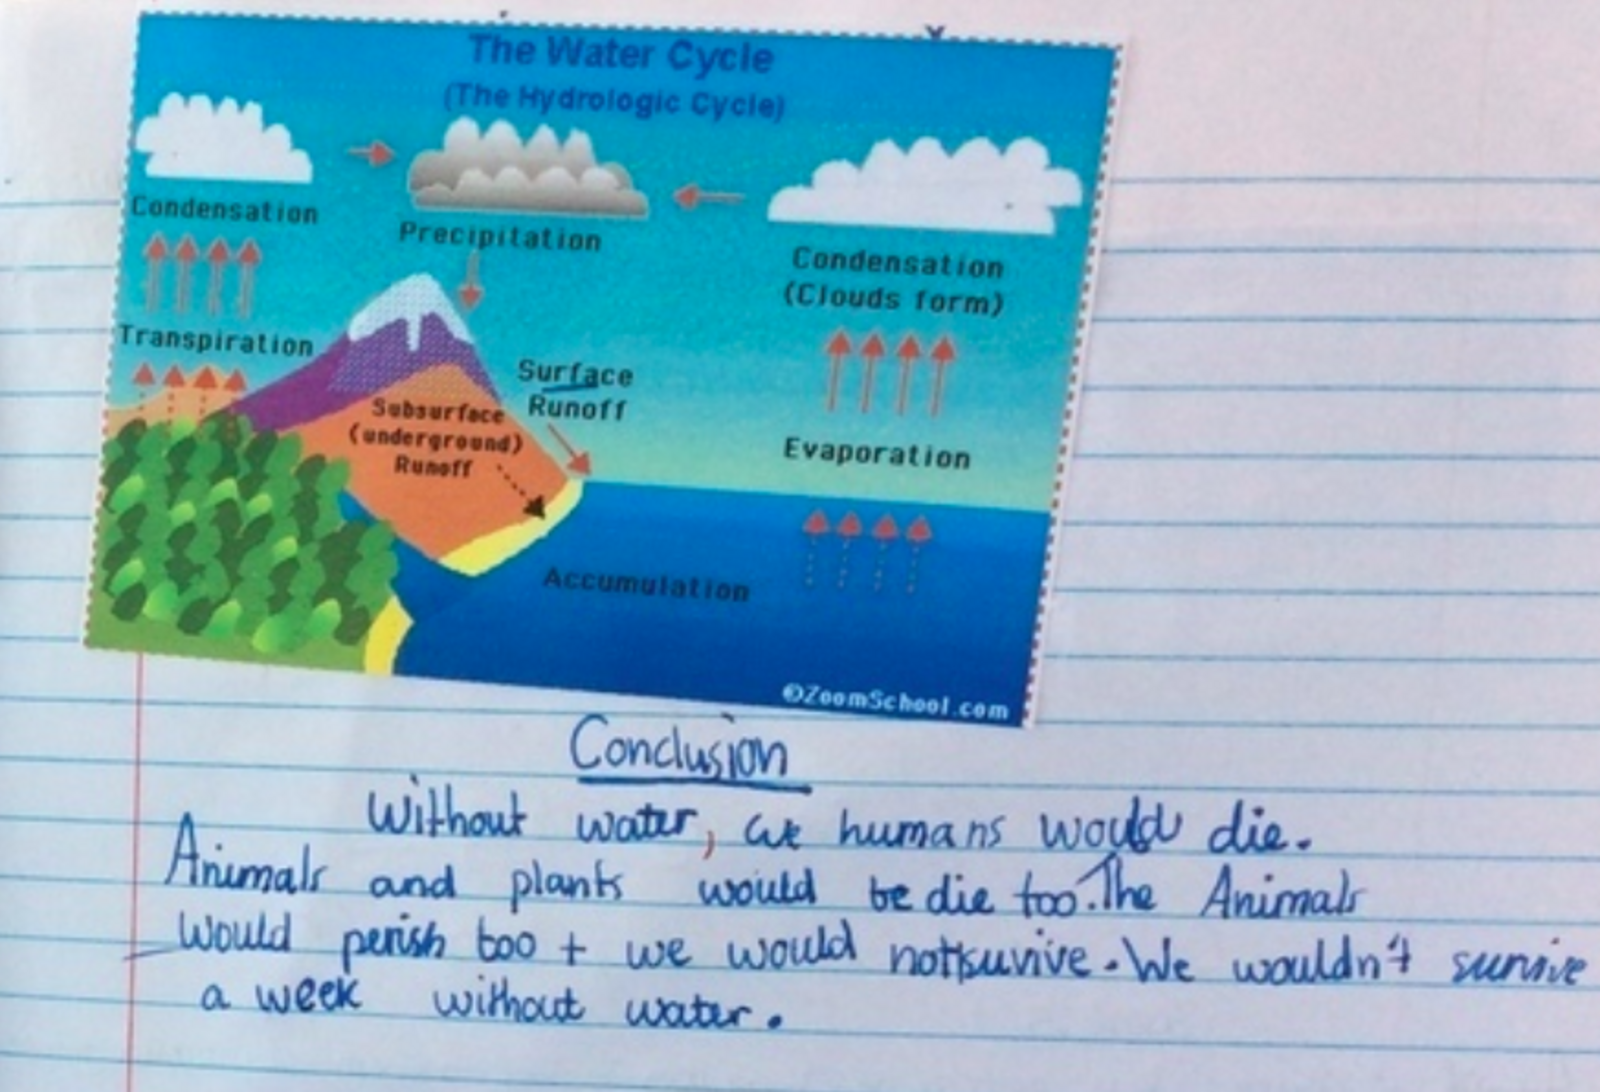 The Water Cycle
(The Hydrologic Cycle)
Condensation
Precipitation
Condensation
(Clouds form)
Transpiration
Surface
Runoff
Subsurface
(underground)
Runoff
Evaporation
Accumulation
©ZoomSchool.com
Conclusion
Without water, we humans would die.
Animals and plants would be die too. The Animals
would perish too + we would not suvive. We wouldn't survive
a week without water.